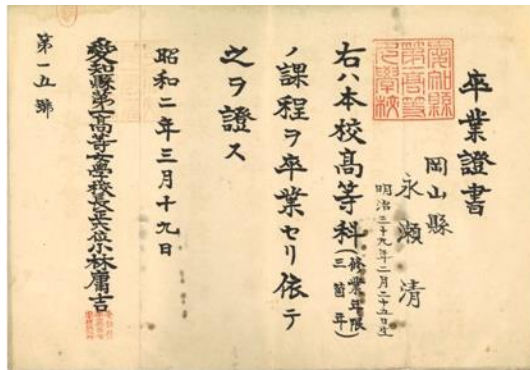 卒業證書
岡山縣
永瀬 清
明治三十九年二月二十五日生
右ハ本校高等科(修業年限三箇年)
ノ課程ヲ卒業セリ依テ
之ヲ證ス
昭和二年三月十九日
愛知縣第一高等女學校長正六位小林庸吉
第一五號
愛知縣第一高等女學校